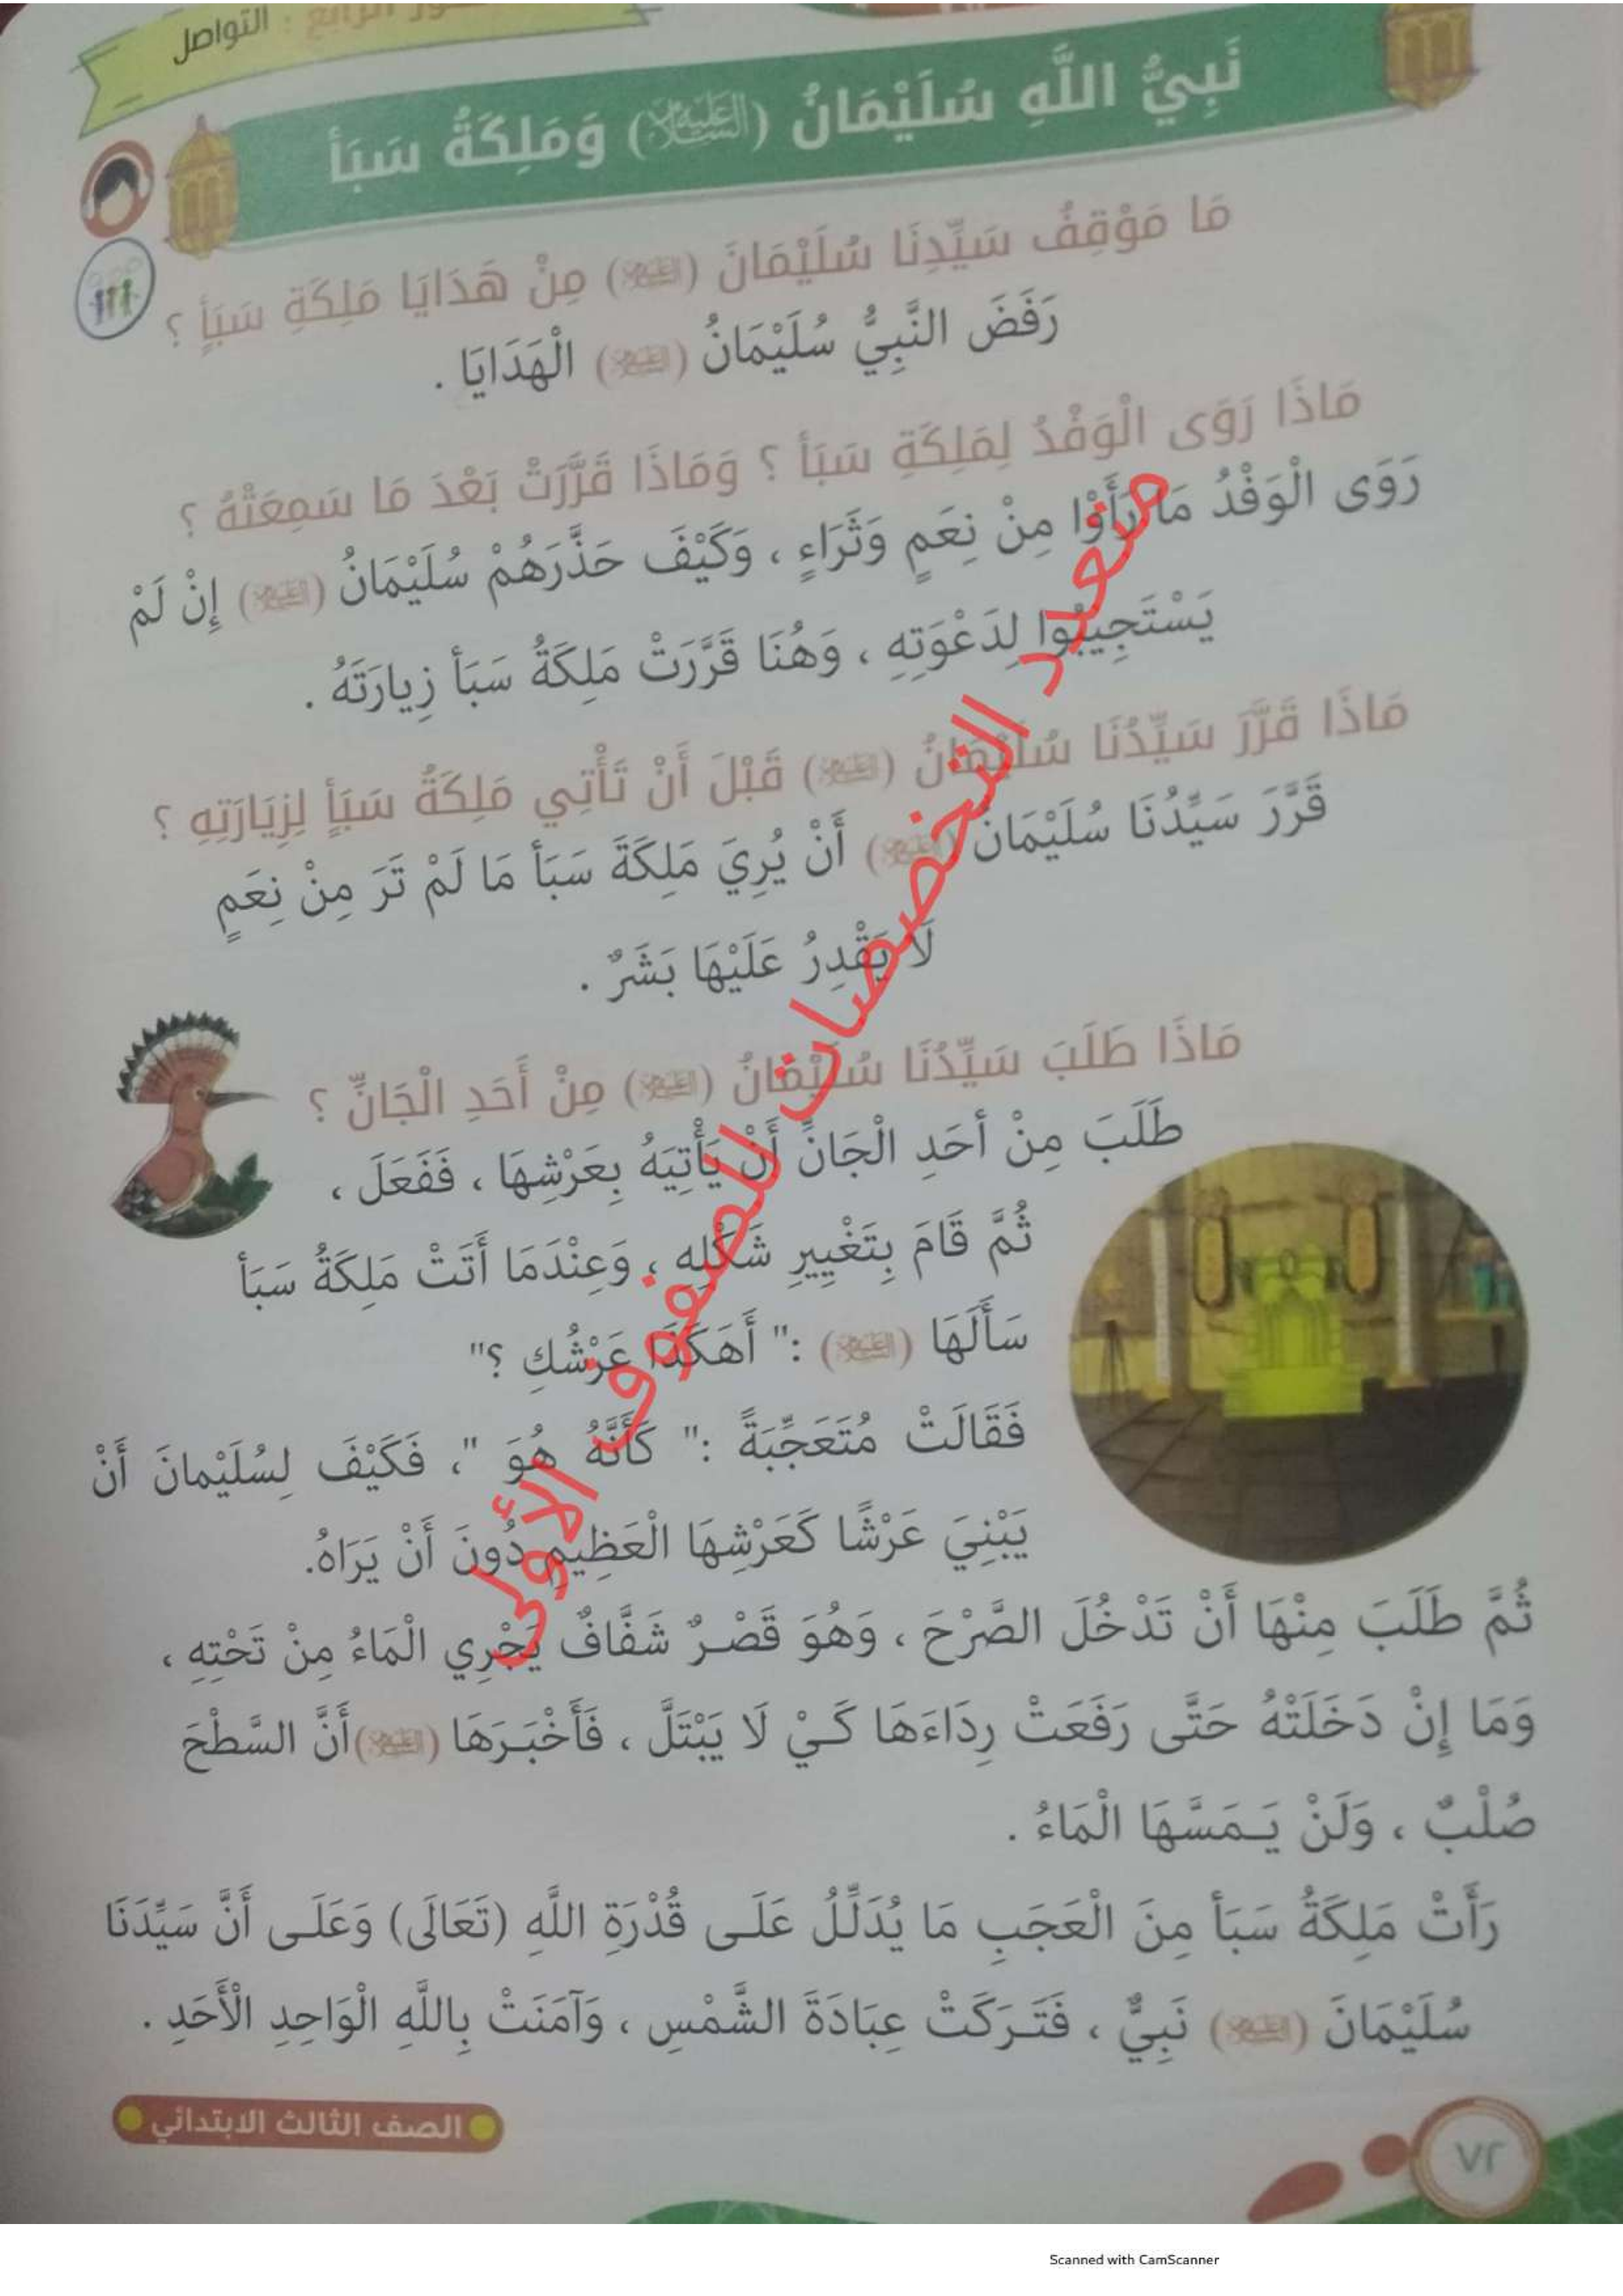 الرابع : التواصل
نَبِيُّ اللَّهِ سُلَيْمَانُ (عليه السلام) وَمَلِكَةُ سَبَأ
مَا مَوْقِفُ سَيِّدِنَا سُلَيْمَانَ (عليه السلام) مِنْ هَدَايَا مَلِكَةِ سَبَأٍ ؟
رَفَضَ النَّبِيُّ سُلَيْمَانُ (عليه السلام) الْهَدَايَا .
مَاذَا رَوَى الْوَفْدُ لِمَلِكَةِ سَبَأ ؟ وَمَاذَا قَرَّرَتْ بَعْدَ مَا سَمِعَتْهُ ؟
رَوَى الْوَفْدُ مَا رَأَوْا مِنْ نِعَمٍ وَثَرَاءٍ ، وَكَيْفَ حَذَّرَهُمْ سُلَيْمَانُ (عليه السلام) إِنْ لَمْ
يَسْتَجِيبُوا لِدَعْوَتِهِ ، وَهُنَا قَرَّرَتْ مَلِكَةُ سَبَأ زِيارَتَهُ .
مَاذَا قَرَّرَ سَيِّدُنَا سُلَيْمَانُ (عليه السلام) قَبْلَ أَنْ تَأْتِي مَلِكَةُ سَبَأٍ لِزِيَارَتِهِ ؟
قَرَّرَ سَيِّدُنَا سُلَيْمَانُ (عليه السلام) أَنْ يُرِيَ مَلِكَةَ سَبَأ مَا لَمْ تَرَ مِنْ نِعَمٍ
لَا يَقْدِرُ عَلَيْهَا بَشَرٌ .
مَاذَا طَلَبَ سَيِّدُنَا سُلَيْمَانُ (عليه السلام) مِنْ أَحَدِ الْجَانِّ ؟
طَلَبَ مِنْ أحَدِ الْجَانِّ أَنْ يَأْتِيَهُ بِعَرْشِهَا ، فَفَعَلَ ،
ثُمَّ قَامَ بِتَغْيِيرِ شَكْلِهِ ، وَعِنْدَمَا أَتَتْ مَلِكَةُ سَبَأ
سَأَلَهَا (عليه السلام) :" أَهَكَذَا عَرْشُكِ ؟"
فَقَالَتْ مُتَعَجِّبَةً :" كَأَنَّهُ هُوَ "، فَكَيْفَ لِسُلَيْمانَ أَنْ
يَبْنِيَ عَرْشًا كَعَرْشِهَا الْعَظِيمِ دُونَ أَنْ يَرَاهُ.
ثُمَّ طَلَبَ مِنْهَا أَنْ تَدْخُلَ الصَّرْحَ ، وَهُوَ قَصْرٌ شَفَّافٌ يَجْرِي الْمَاءُ مِنْ تَحْتِهِ ،
وَمَا إِنْ دَخَلَتْهُ حَتَّى رَفَعَتْ رِدَاءَهَا كَيْ لَا يَبْتَلَّ ، فَأَخْبَرَهَا (عليه السلام) أَنَّ السَّطْحَ
صُلْبٌ ، وَلَنْ يَمَسَّهَا الْمَاءُ .
رَأَتْ مَلِكَةُ سَبَأ مِنَ الْعَجَبِ مَا يُدَلِّلُ عَلَى قُدْرَةِ اللَّهِ (تَعَالَى) وَعَلَى أَنَّ سَيِّدَنَا
سُلَيْمَانَ (عليه السلام) نَبِيٌّ ، فَتَرَكَتْ عِبَادَةَ الشَّمْسِ ، وَآمَنَتْ بِاللَّهِ الْوَاحِدِ الْأَحَدِ .
الصف الثالث الابتدائي
٧٢
متعدد التخصصات للصفوف الأولى
Scanned with CamScanner